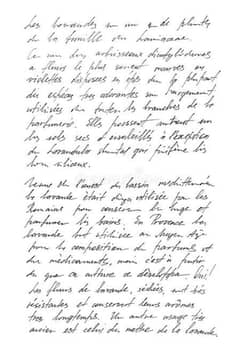 Les lavandes en un genre de plantes
de la famille des lamiacées
Ce sont des arbrisseaux dicotylédones
à fleurs le plus souvent mauves ou
violettes disposées en épis dont la plupart
des espèces très odorantes sont largement
utilisées dans toutes les branches de la
parfumerie. Elles poussent surtout sur
les sols secs et ensoleillés à l'exception
du lavandula dentata qui préfère les
sols siliceux.
Venue de l'ouest du bassin méditerranéen
la lavande était déjà utilisée par les
Romains pour conserver le linge et
parfumer les bains. En Provence la
lavande fut utilisée au Moyen âge
pour la composition de parfums et
de médicaments, mais c'est à partir
du que sa culture se développa.
Les fleurs de lavande, séchées, sont très
résistantes et conservent leurs arômes
très longtemps. Un autre usage très
ancien est celui du mettre de la lavande